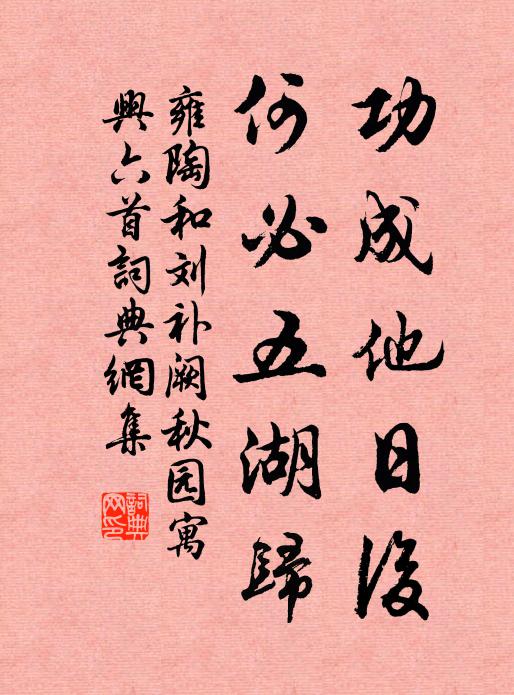 功成他日後
何必五湖歸
雍陶和刘补阙秋园寓
興六首詞典網集
詞典
网印